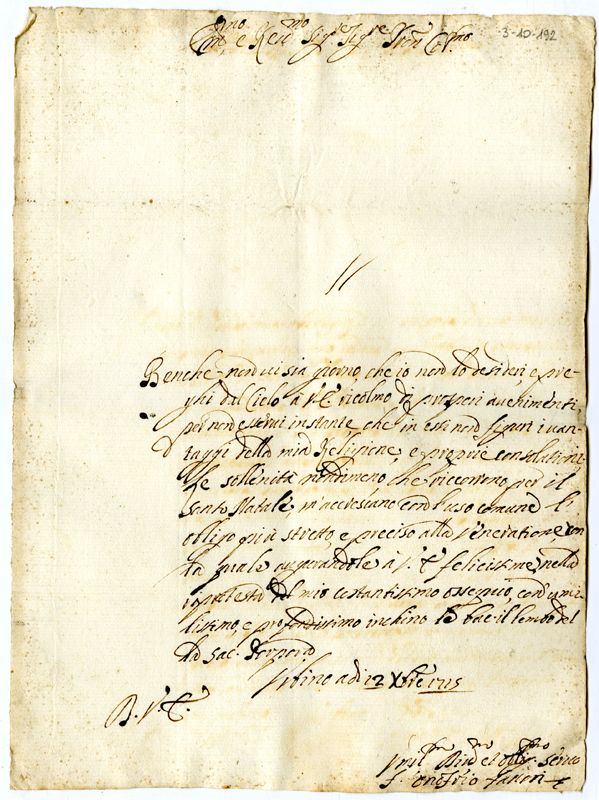 Em.mo e Rev.mo Sig.re Sig.re Pron Col.mo
3-10-192
Benche non vi sia giorno, che io non lo desideri, e pre-
ghi dal Cielo à V.E. ricolmo di prosperi avvenimenti,
per non esservi instante, che in essi non figuri i van-
taggi della mia Religione, e proprie consolationi,
le sollenità nondimeno che ricorrono per il
Santo Natale, m'accrescano con l'uso comune l'
obligo più stretto, e preciso alla Veneratione con
la quale augurandole à V.E. felicissime, nella
protesta del mio costantissimo ossequio, con umi-
lissimo, e profondissimo inchino le bacio il lembo del
la Sac. Porpora
Urbino adi 12 Xbre 1715
B. V. E.
Umil.mo Div.mo et Obl.mo Servo
F. Onofrio